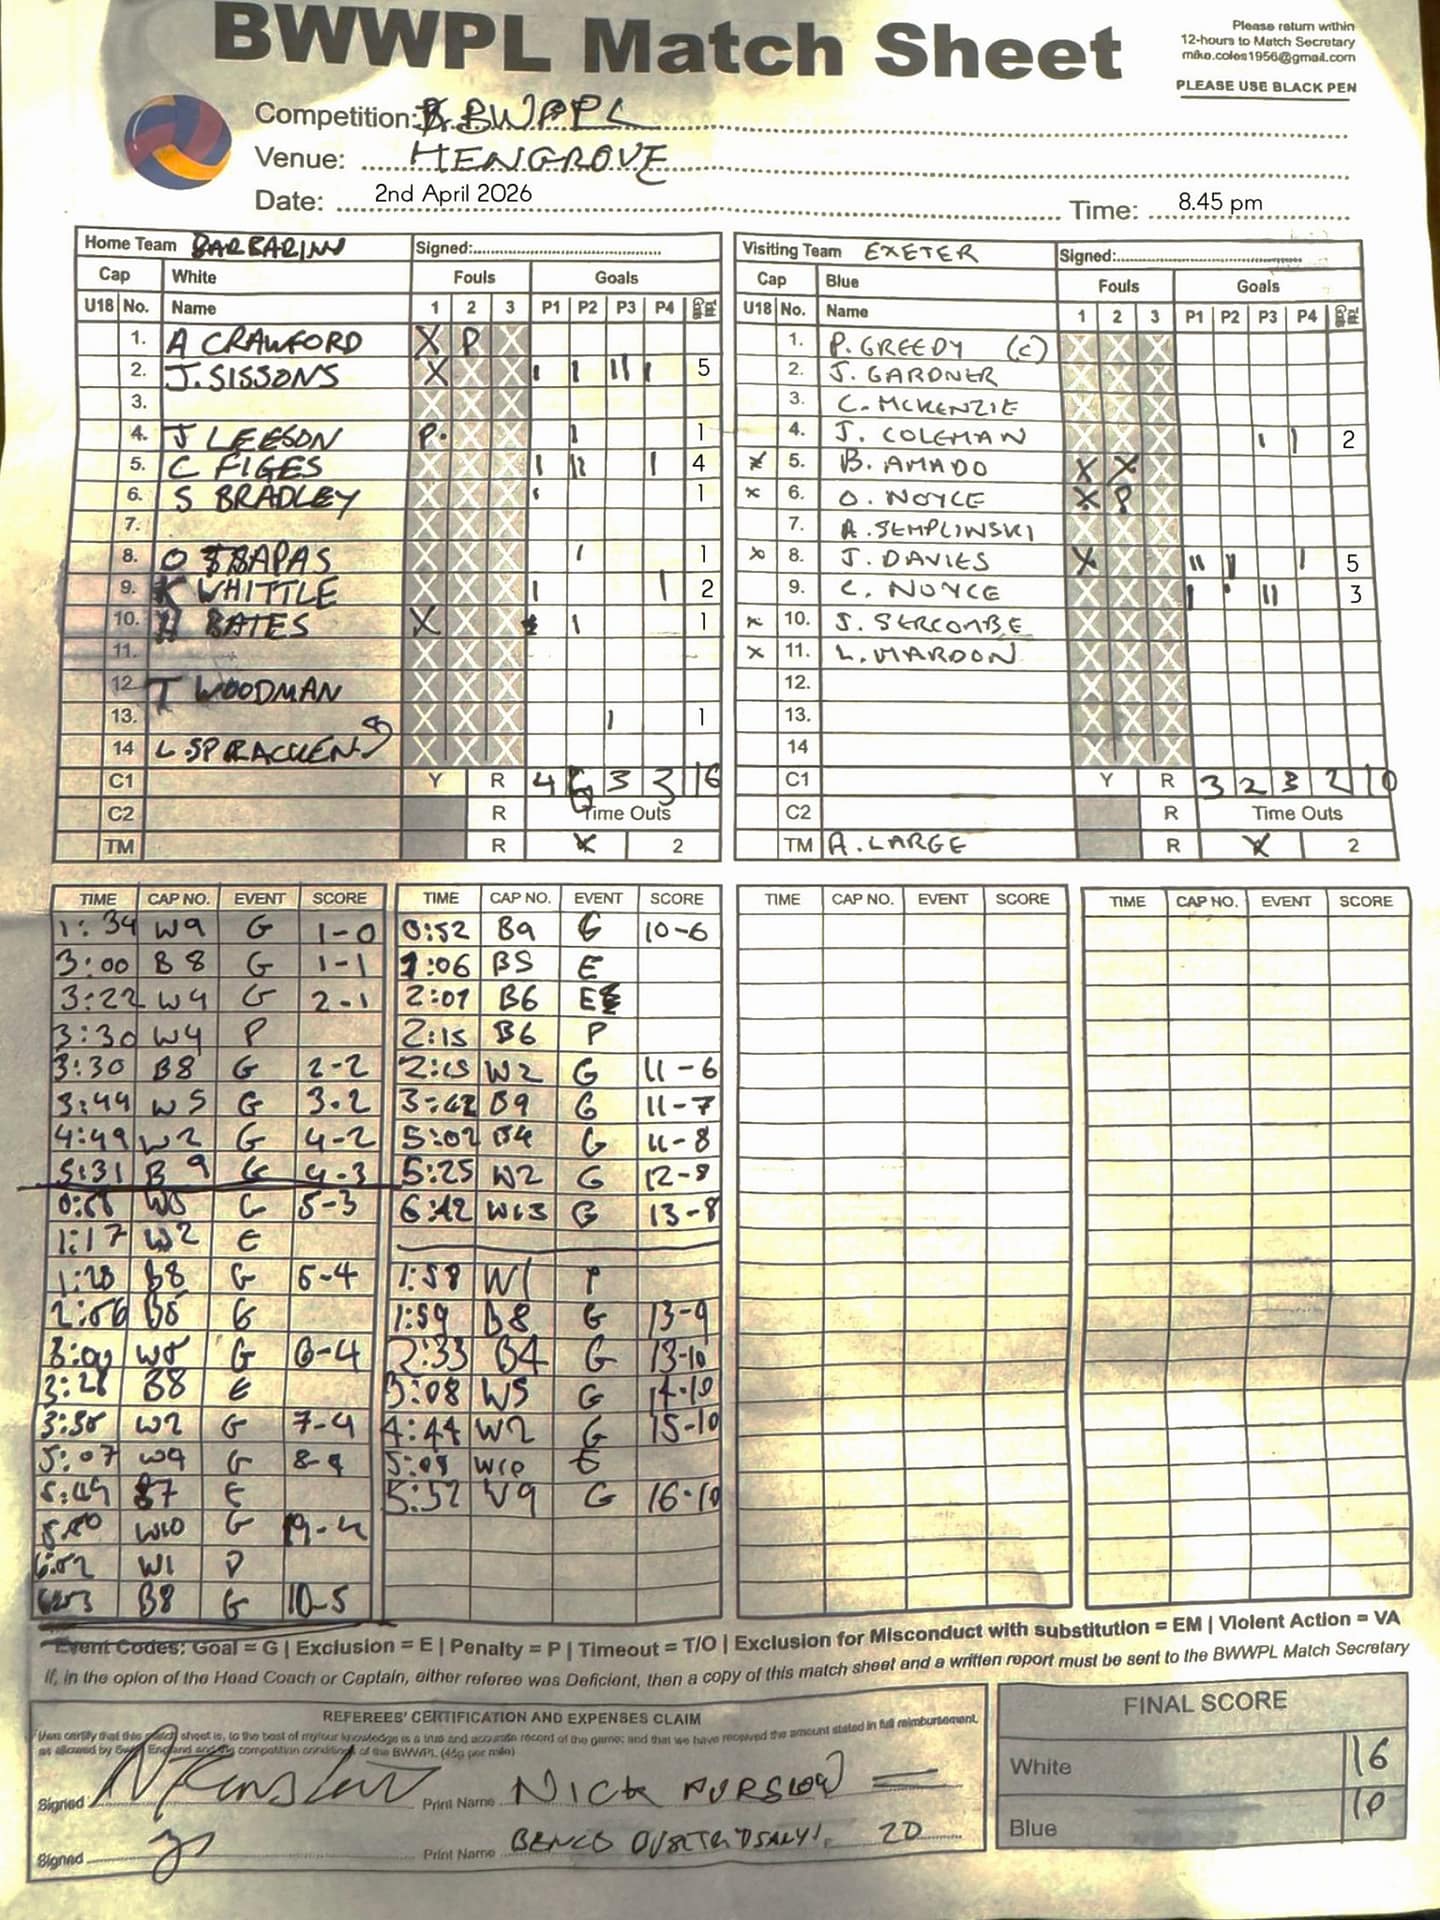 BWWPL Match Sheet
Please return within
12-hours to Match Secretary
mike.coles1956@gmail.com
PLEASE USE BLACK PEN
Competition: BWPPL
Venue: HENGROVE
Date: 2nd April 2026 Time: 8.45 pm
Home Team Signed:
Cap White Fouls Goals
U18 No. Name 1 2 3 P1 P2 P3 P4
1. A CRAWFORD X P
2. J. SISSONS X I I III I 5
3.
4. J LEESON P. I 1
5. C FIGES I II I 4
6. S BRADLEY I 1
7.
8. O I 1
9. K WHITTLE I I 2
10. BATES X I 1
11.
12 T WOODMAN
13. I 1
14 L SPRACKEN
C1 Y R 4 6 3 3 16
C2 R Time Outs
TM R X 2
Visiting Team EXETER Signed:
Cap Blue Fouls Goals
U18 No. Name 1 2 3 P1 P2 P3 P4
1. P. GREEDY (C)
2. J. GARDNER
3. C. MCKENZIE
4. J. COLEMAN I I 2
x 5. B. AMADO X X
x 6. O. NOYCE X P
7. A. SEMPLINSKI
x 8. J. DAVIES X II I 5
9. C. NOYCE I II 3
x 10. J. SERCOMBE
x 11. L. MARDON
12.
13.
14
C1 Y R 3 2 3 2 10
C2 R Time Outs
TM A. LARGE R X 2
TIME CAP NO. EVENT SCORE
1:34 W9 G 1-0
3:00 B8 G 1-1
3:22 W4 G 2-1
3:30 W4 P
3:30 B8 G 2-2
3:44 W5 G 3-2
4:49 W2 G 4-2
5:31 B9 G 4-3
W5 G 5-3
1:17 W2 E
1:28 B8 G 5-4
2:56 B5
3:00 W5 G 6-4
3:28 B8 E
3:38 W2 G 7-4
5:07 W4 G 8-4
5:49 B7 E
W10 G 9-4
6:02 W1 P
B8 G 10-5
TIME CAP NO. EVENT SCORE
0:52 B9 G 10-6
1:06 B5 E
2:07 B6 E
2:15 B6 P
2:15 W2 G 11-6
3:42 B9 G 11-7
5:02 B4 G 11-8
5:25 W2 G 12-8
6:42 W13 G 13-8
1:58 W1 P
1:59 B8 G 13-9
2:33 B4 G 13-10
3:08 W5 G 14-10
4:44 W2 G 15-10
5:09 W10 E
5:52 W9 G 16-10
TIME CAP NO. EVENT SCORE
TIME CAP NO. EVENT SCORE
Event Codes: Goal = G | Exclusion = E | Penalty = P | Timeout = T/O | Exclusion for Misconduct with substitution = EM | Violent Action = VA
If, in the opion of the Head Coach or Captain, either referee was Deficient, then a copy of this match sheet and a written report must be sent to the BWWPL Match Secretary
REFEREES' CERTIFICATION AND EXPENSES CLAIM
I/we certify that this match sheet is, to the best of my/our knowledge is a true and accurate record of the game; and that we have received the amount stated in full reimbursement,
as allowed by Swim England and the competition conditions of the BWWPL (45p per mile)
Signed Print Name NICK PURSLOW
Signed Print Name 20
FINAL SCORE
White 16
Blue 10